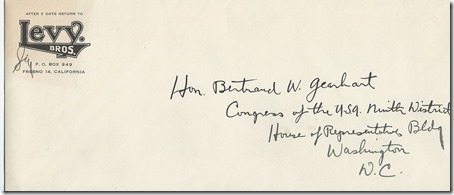 AFTER 5 DAYS RETURN TO
Levy
BROS.
P. O. BOX 949
FRESNO 14, CALIFORNIA
Hon. Bertrand W. Gearhart
Congress of the USA. Ninth District
House of Representatives Bldg
Washington
D.C.